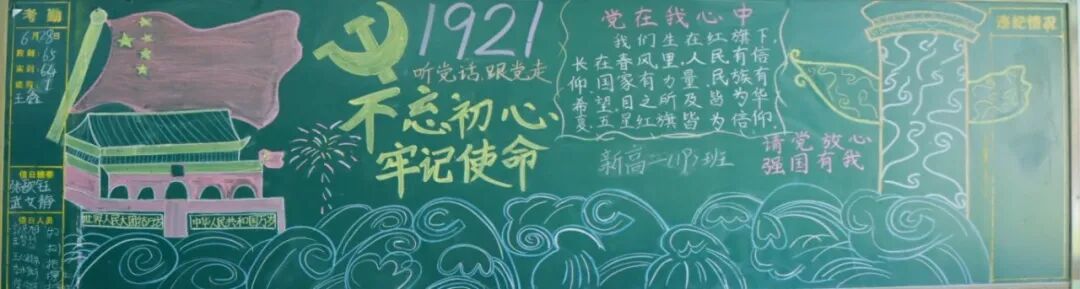 考勤
6月28日
应到:65
实到:64
王鑫
值日班委
值日人员
世界人民大团结万岁
中华人民共和国万岁
1921
听党话,跟党走
不忘初心、
牢记使命
党在我心中
我们生在红旗下,
长在春风里,人民有信
仰,国家有力量,民族有
希望,目之所及皆为华
夏,五星红旗皆为信仰
新高二(19)班
请党放心
强国有我
违纪情况